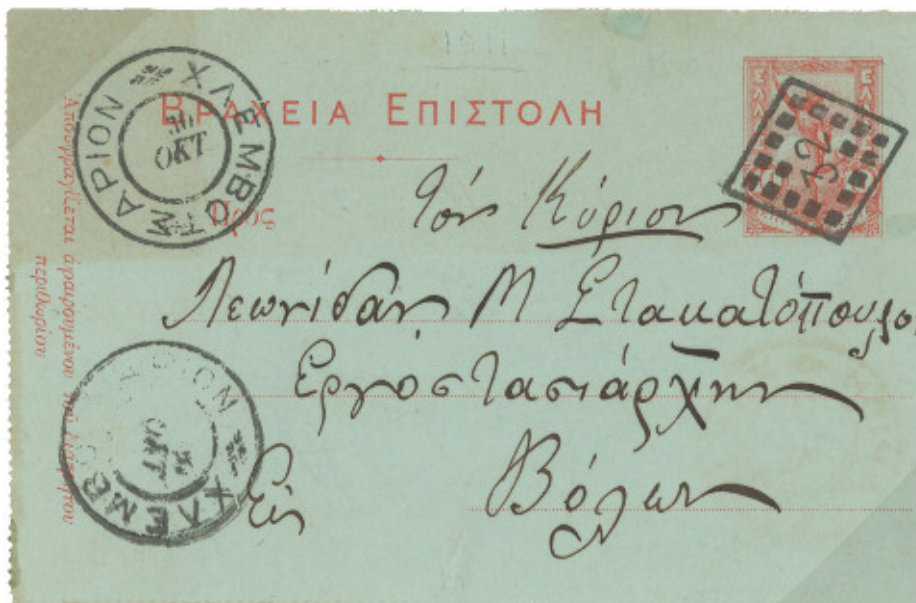 1911
ΒΡΑΧΕΙΑ ΕΠΙΣΤΟΛΗ
ΧΛΕΜΒΟΤΣΑΡΙΟΝ
30
ΟΚΤ
ΕΛΛ
132
Πρὸς
Τὸν Κύριον
Λεωνίδαν Μ Σταματόπουλο
Ἐργοστασιάρχην
Εἰς Βόλον
ΧΛΕΜΒ ΡΙΟΝ
ΟΚΤ
Ἀποσφραγίζεται ἀφαιρουμένου τοῦ διατρήτου
περιθωρίου